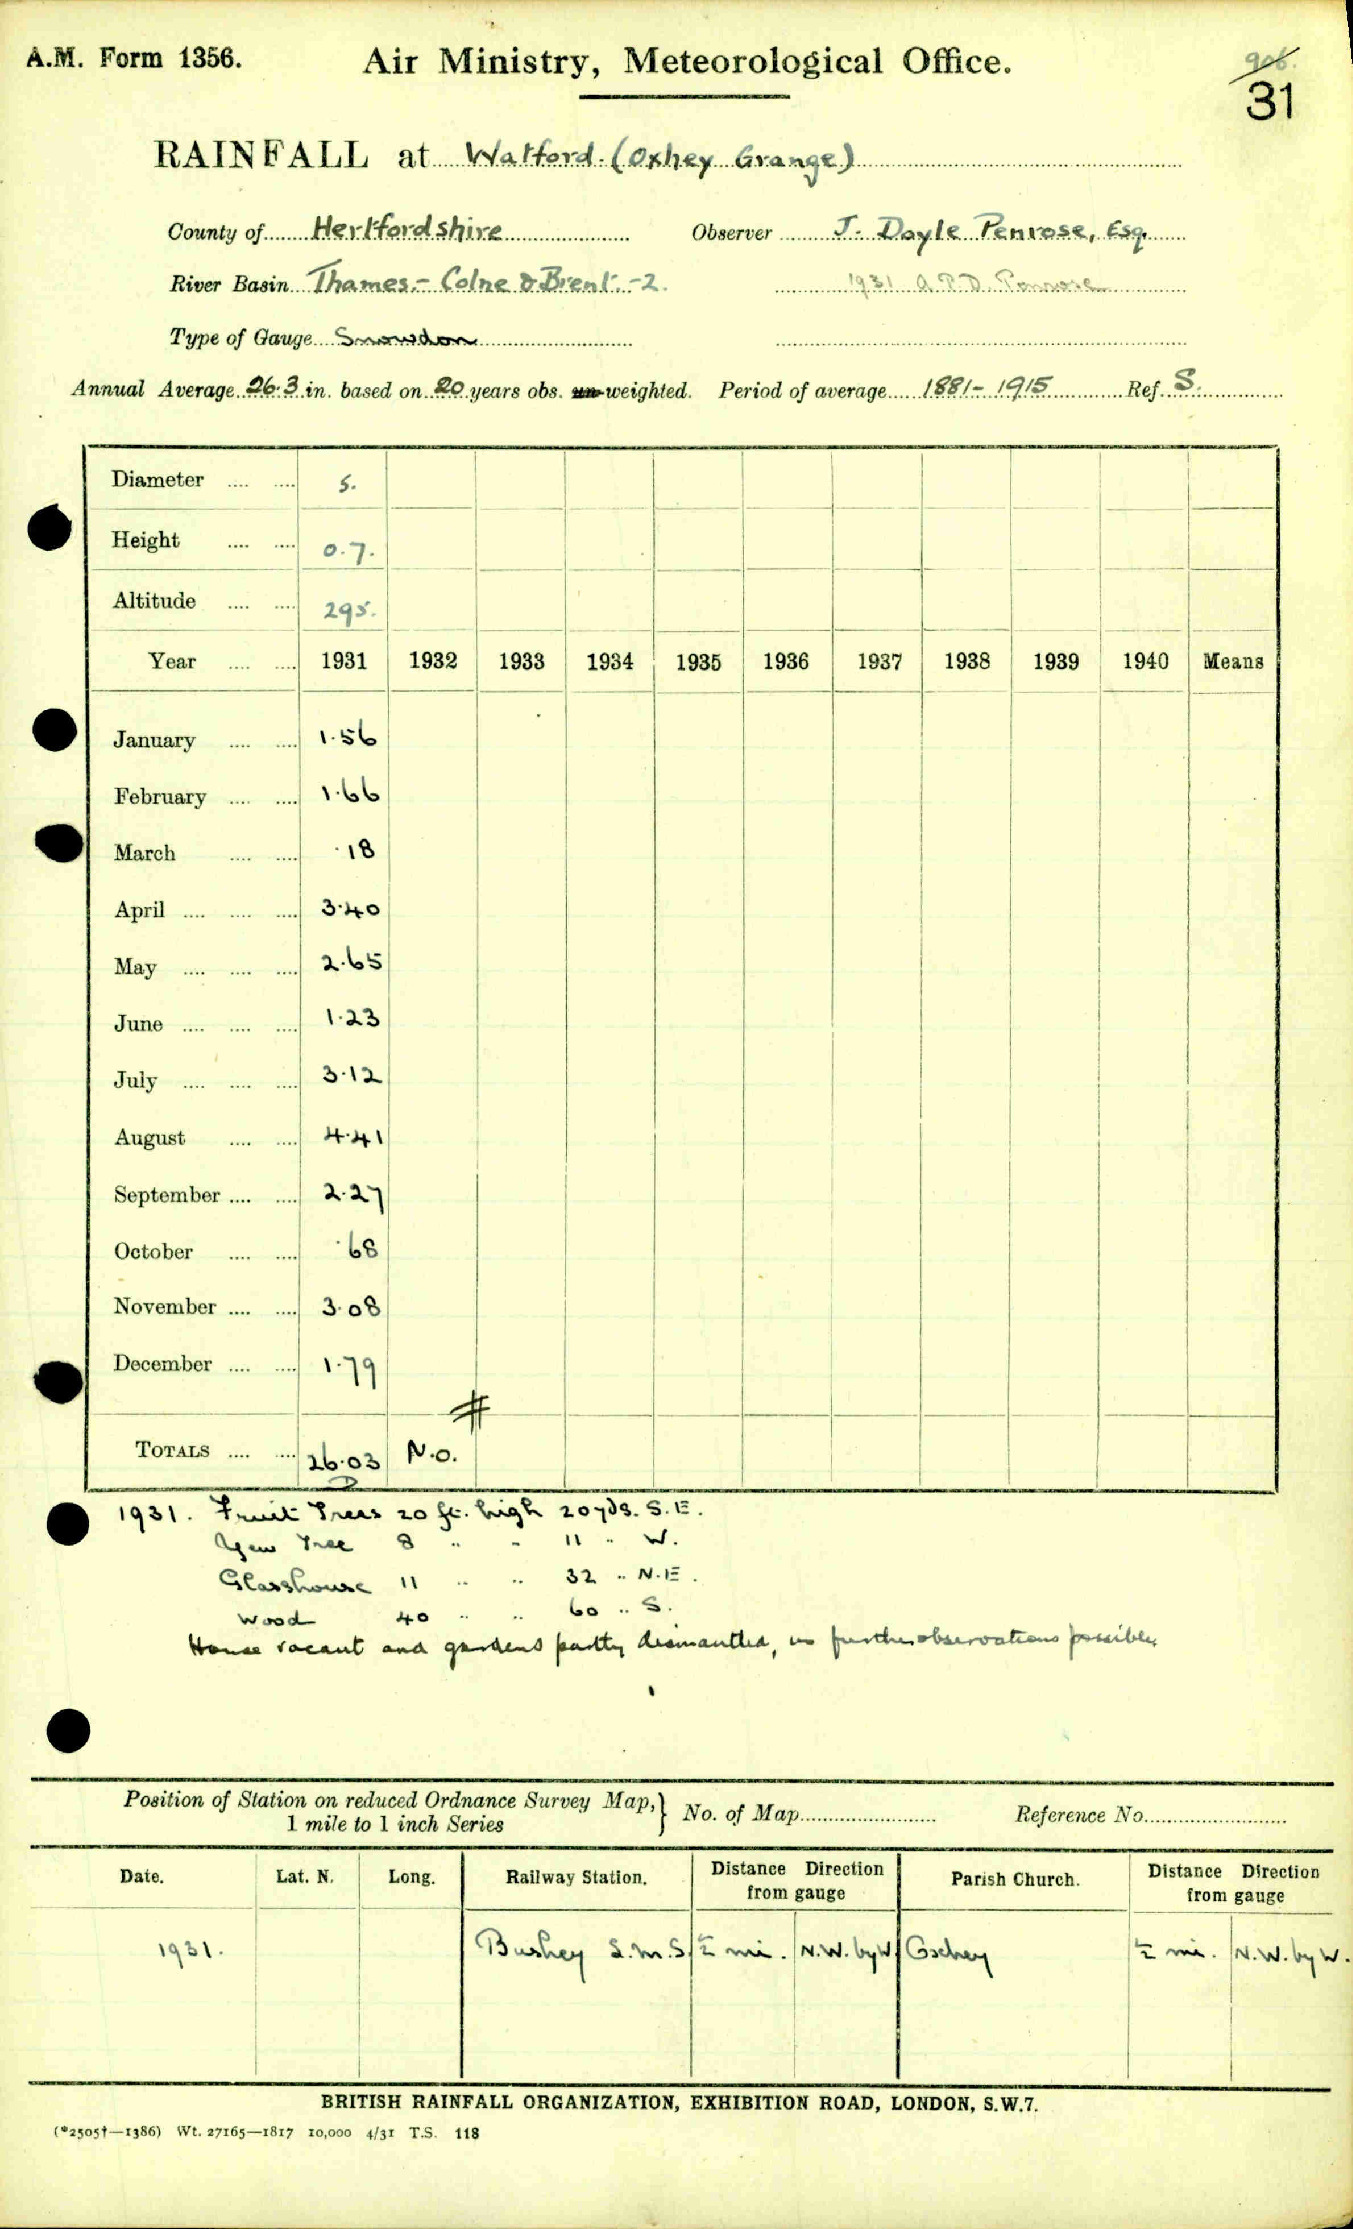 A.M. Form 1356. Air Ministry, Meteorological Office.
906.
31
RAINFALL at Watford. (Oxhey Grange)
County of Hertfordshire Observer J. Doyle Penrose, Esq.
River Basin Thames - Colne & Brent. - 2. 1931 A.P.D. Penrose
Type of Gauge Snowdon
Annual Average 26.3 in. based on 20 years obs. un-weighted. Period of average 1881-1915 Ref. S.
Diameter .... .... 5.
Height .... .... 0.7.
Altitude .... .... 295.
Year .... .... 1931 1932 1933 1934 1935 1936 1937 1938 1939 1940 Means
January .... .... 1.56
February .... .... 1.66
March .... .... .18
April .... .... .... 3.40
May .... .... .... 2.65
June .... .... .... 1.23
July .... .... .... 3.12
August .... .... 4.41
September .... .... 2.27
October .... .... .68
November .... .... 3.08
December .... .... 1.79
#
TOTALS .... .... 26.03 N.O.
D
1931. Fruit Trees 20 ft. high 20 yds. S.E.
Yew Tree 8 " " 11 " W.
Glasshouse 11 " " 32 " N.E.
Wood 40 " " 60 " S.
House vacant and gardens partly dismantled, no further observations possible.
Position of Station on reduced Ordnance Survey Map,} No. of Map Reference No.
1 mile to 1 inch Series
Date. Lat. N. Long. Railway Station. Distance Direction from gauge Parish Church. Distance Direction from gauge
1931. Bushey L.M.S. ½ mi. N.W. by W. Oxhey ½ mi. N.W. by W.
BRITISH RAINFALL ORGANIZATION, EXHIBITION ROAD, LONDON, S.W.7.
(*2505†—1386) Wt. 27165—1817 10,000 4/31 T.S. 118